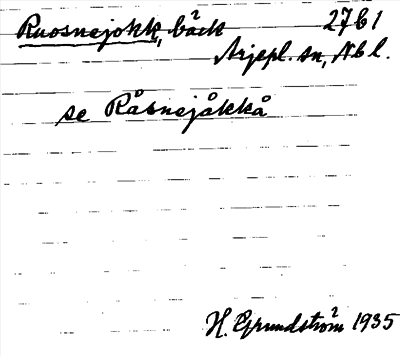 Ruosnejokk, bäck 27B1
Arjepl. sn, Nbl.
se Råsnejåkkå
H. Grundström 1935